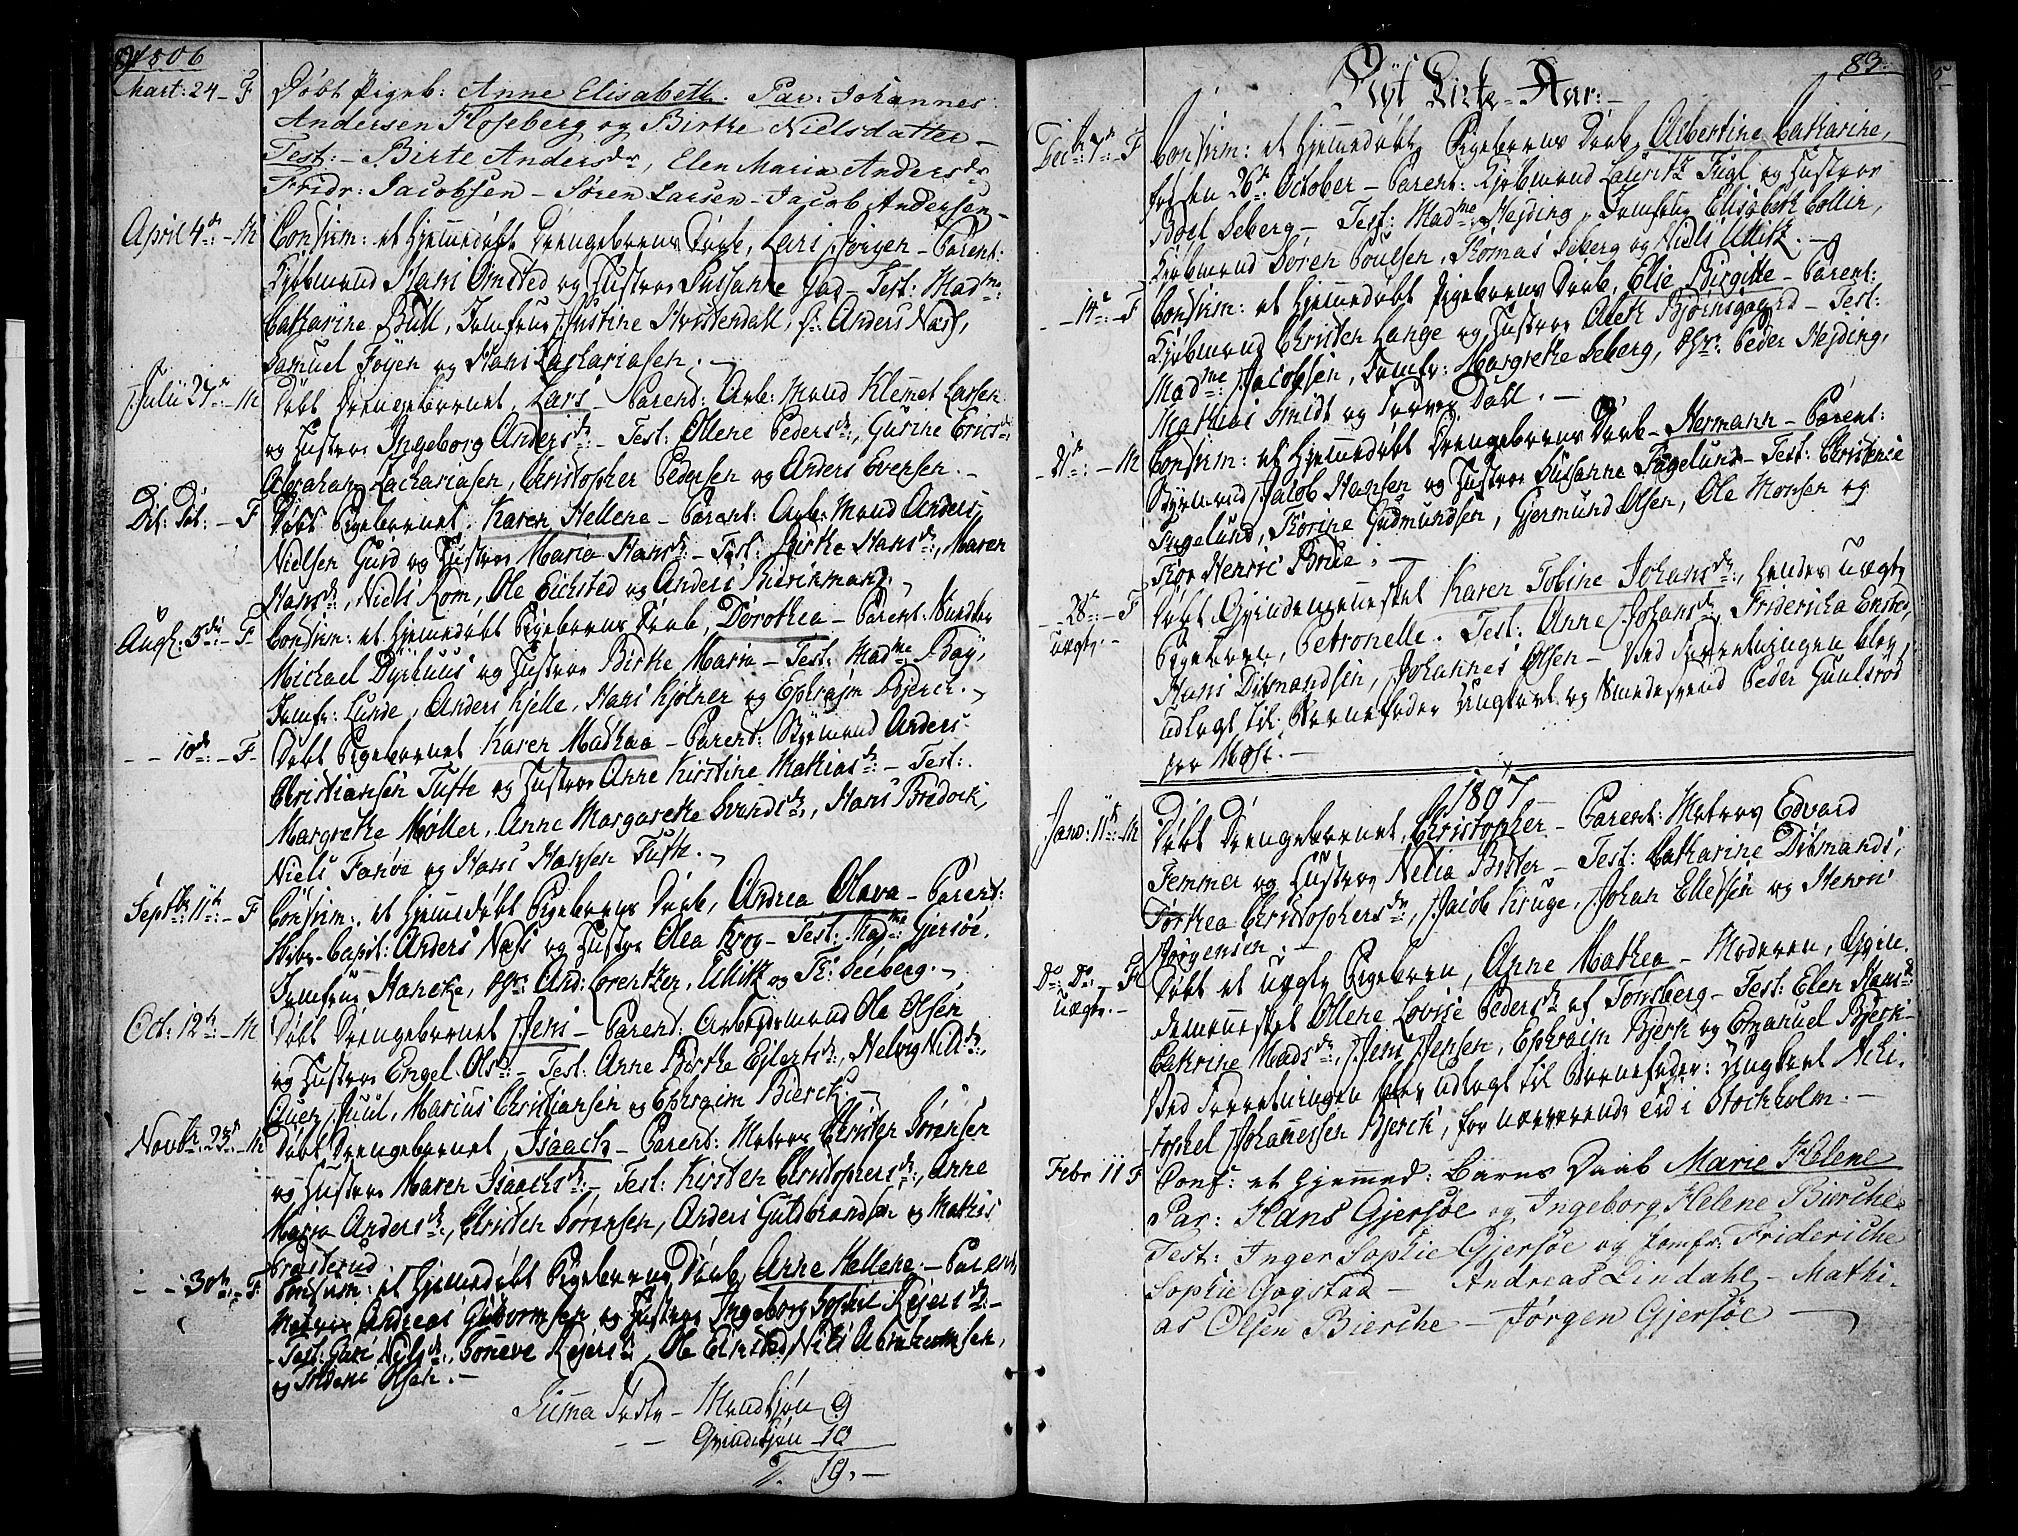 1806
Mart: 24 – F
Døbt Pigeb: Anne Elisabeth. Par: Johannes
Andersen Floseberg og Birthe Nielsdatter –
Test: – Birte Andersdr, Elen Maria Andersdr
Fridr: Jacobsen – Søren Larsen – Jacob Andersen –
April 4de: – M
Confirm: et hjemmedøbt Drengebarns Daab, Lars Jørgen – Parent:
Kjøbmand Hans Omsted og Hustroe Susanne Gad – Test: Madme:
Catharine Bull, Jomfrue Justine Hvistendall, Hr: Anders Næss,
Samuel Foyen og Hans Zachariasen. –
Julii 27de: – M
Døbt Drengebarnet Lars – Parend: Arb: Mand Klemet Larsen
og Hustroe Ingeborg Andersdr: – Test: Ollene Pedersdr:, Gurine Ericsdr:
Abraham Zachariasen, Christopher Pedersen og Anders Evensen. –
Dit: Dit: – F
Døbt Pigebarnet, Karen Hellene – Parent: Arb: Mand Anders
Nielsen Gurd og Hustroe Maria Hansdr: – Test: Birthe Hansdr:, Maren
Hansdr:, Niels Rom, Ole Eichsted og Anders Bierkmann. –
Augst: 5de: – F
Confirm: et hjemmedøbt Pigebarns Daab, Dorothea – Parent:
Michael Dyrhuus og Hustroe Birthe Maria – Test: Madme: Bøy,
Jomfr: Lunde, Anders Kjelle, Hans Kjølner og Ephraim Bjerck. –
– – 10de: – F
Døbt Pigebarnet Karen Mathea – Parent: Byemand Anders
Christiansen Tufte og Hustroe Anne Kirstine Mathiasdr: – Test:
Margrethe Møller, Anne Margarethe Svendsdr:, Hans Bredock,
Niels Farøe og Hans Hansen Tufte. –
Septbr 11te: – F
Confirm: et hjemmedøbt Pigebarns Daab, Andrea Olava – Parent:
Skibs-Capit: Anders Næss og Hustroe Olea Krog – Test: Madme: Gjersøe,
Jomfrue Hancke, Hr: And: Lorentzen, Ullitz og Th: Seeberg. –
Oct: 12te: – M
Døbt Drengebarnet Jens – Parend: Arbeidsmand Ole Olsen
og Hustroe Engel Olsdr: – Test: Anne Birthe Ejlertsdr:, Helvig Nilsdr:,
Ouen Juul, Marius Christiansen og Ephraim Bierck. –
Novbr: 23de: – M
Døbt Drengebarnet, Isaach – Parent: Matros Christen Sørensen
og Hustroe Maren Isaachsdr: – Test: Kirsten Christophersdr:, Anne
Maria Andersdr:, Christen Sørensen, Anders Guldbrandsen og Mathis
Præsterud
– – 30te: – F
Confirm: et hjemmedøbt Pigebarns Daab, Anne Hellene – Parent:
Matros Andreas Guttormsen og Hustroe Ingeborg Sophie Rejersdr: –
– Test: Guri Nilsdr:, Rejersdr:, Ole Einsted, Nils Abrahamsen,
og Olsen. –
Summa Fødte – Mandkjøn 9
– – Qvindekjøn – 10
T. 19. –
83.
Nyt Kirke-Aar: –
Decbr: 7de: – F
Confirm: et hjemmedøbt Pigebarns Daab, Albertine Catharine,
fød den 26de: October – Parent: Kjøbmand Lauritz Fugl og Hustroe
Boel Seberg – Test: Madme: Hejding, Jomfrue Elisabeth Collin,
Kjøbmand Søren Poulsen, Thomas Seberg og Niels Ullitz. –
– – 14de: – F
Confirm: et hjemmedøbt Pigebarns Daab, Elie Birgitte – Parent:
Kjøbmand Christen Lange og Hustroe Aleth Bjørnsgaard – Test:
Madme: Jacobsen, Jomfr: Margrethe Seberg, Hr: Peder Hejding,
Mathias Smidt og Dall. –
21de: – M
Confirm: et hjemmedøbt Drengebarns Daab – Hermann – Parent:
Byemand Jacob Hansen og Hustroe Susanne Fugelund – Test: Christence
Fugelund, Thorine Gudmundsen, Gjermund Olsen, Ole Monsen og
Thor Henric Brue. –
– – 28de: – F
uægte. –
Døbt Qvindemennesket Karen Toline Johansdr:, hendes uægte
Pigebarn, Petronelle. Test: Anne Johansdr:, Fridericha Ensted,
Hans Ditmandsen, Johannes Olsen – Ved Forretningen blev
udlagt til Barnefader Ungkarl og Smedesvend Peder Gaulsrød
fra Moss. –
1807
Janv: 11te: – M
Døbt Drengebarnet, Christopher – Parent: Matros Edvard
Femmer og Hustroe Nelia Bitter – Test: Catharine Ditmands,
Torthea Christophersdr:, Jacob Kruge, Johan Ellefsen og Henric
Jørgensen. –
Do: Do: – F
uægte. –
Døbt et uægte Pigebarn, Anne Mathea – Moderen, Qvin-
demennesket Ollene Lovise Pedersdr: af Tønsberg – Test: Elen Hansdr:
Cathrine Madsdr:, Jens Jensen, Ephraim Bjerk og Emanuel Bjerk –
Ved Forretningen blev udlagt til Barnefader: Ungkarl Chri-
stophel Johannessen Bjerck, for nærværende Tid i Stockholm. –
Febr 11 F
Conf: et hjemmed: Barns Daab Marie Helene
Par: Hans Gjersøe og Ingeborg Helene Bierche.
Test: Inger Sophie Gjersøe og Jomfr: Frideriche
Sophie Gogstad – Andreas Lindahl – Mathi-
as Olsen Bierche – Jørgen Gjersøe –